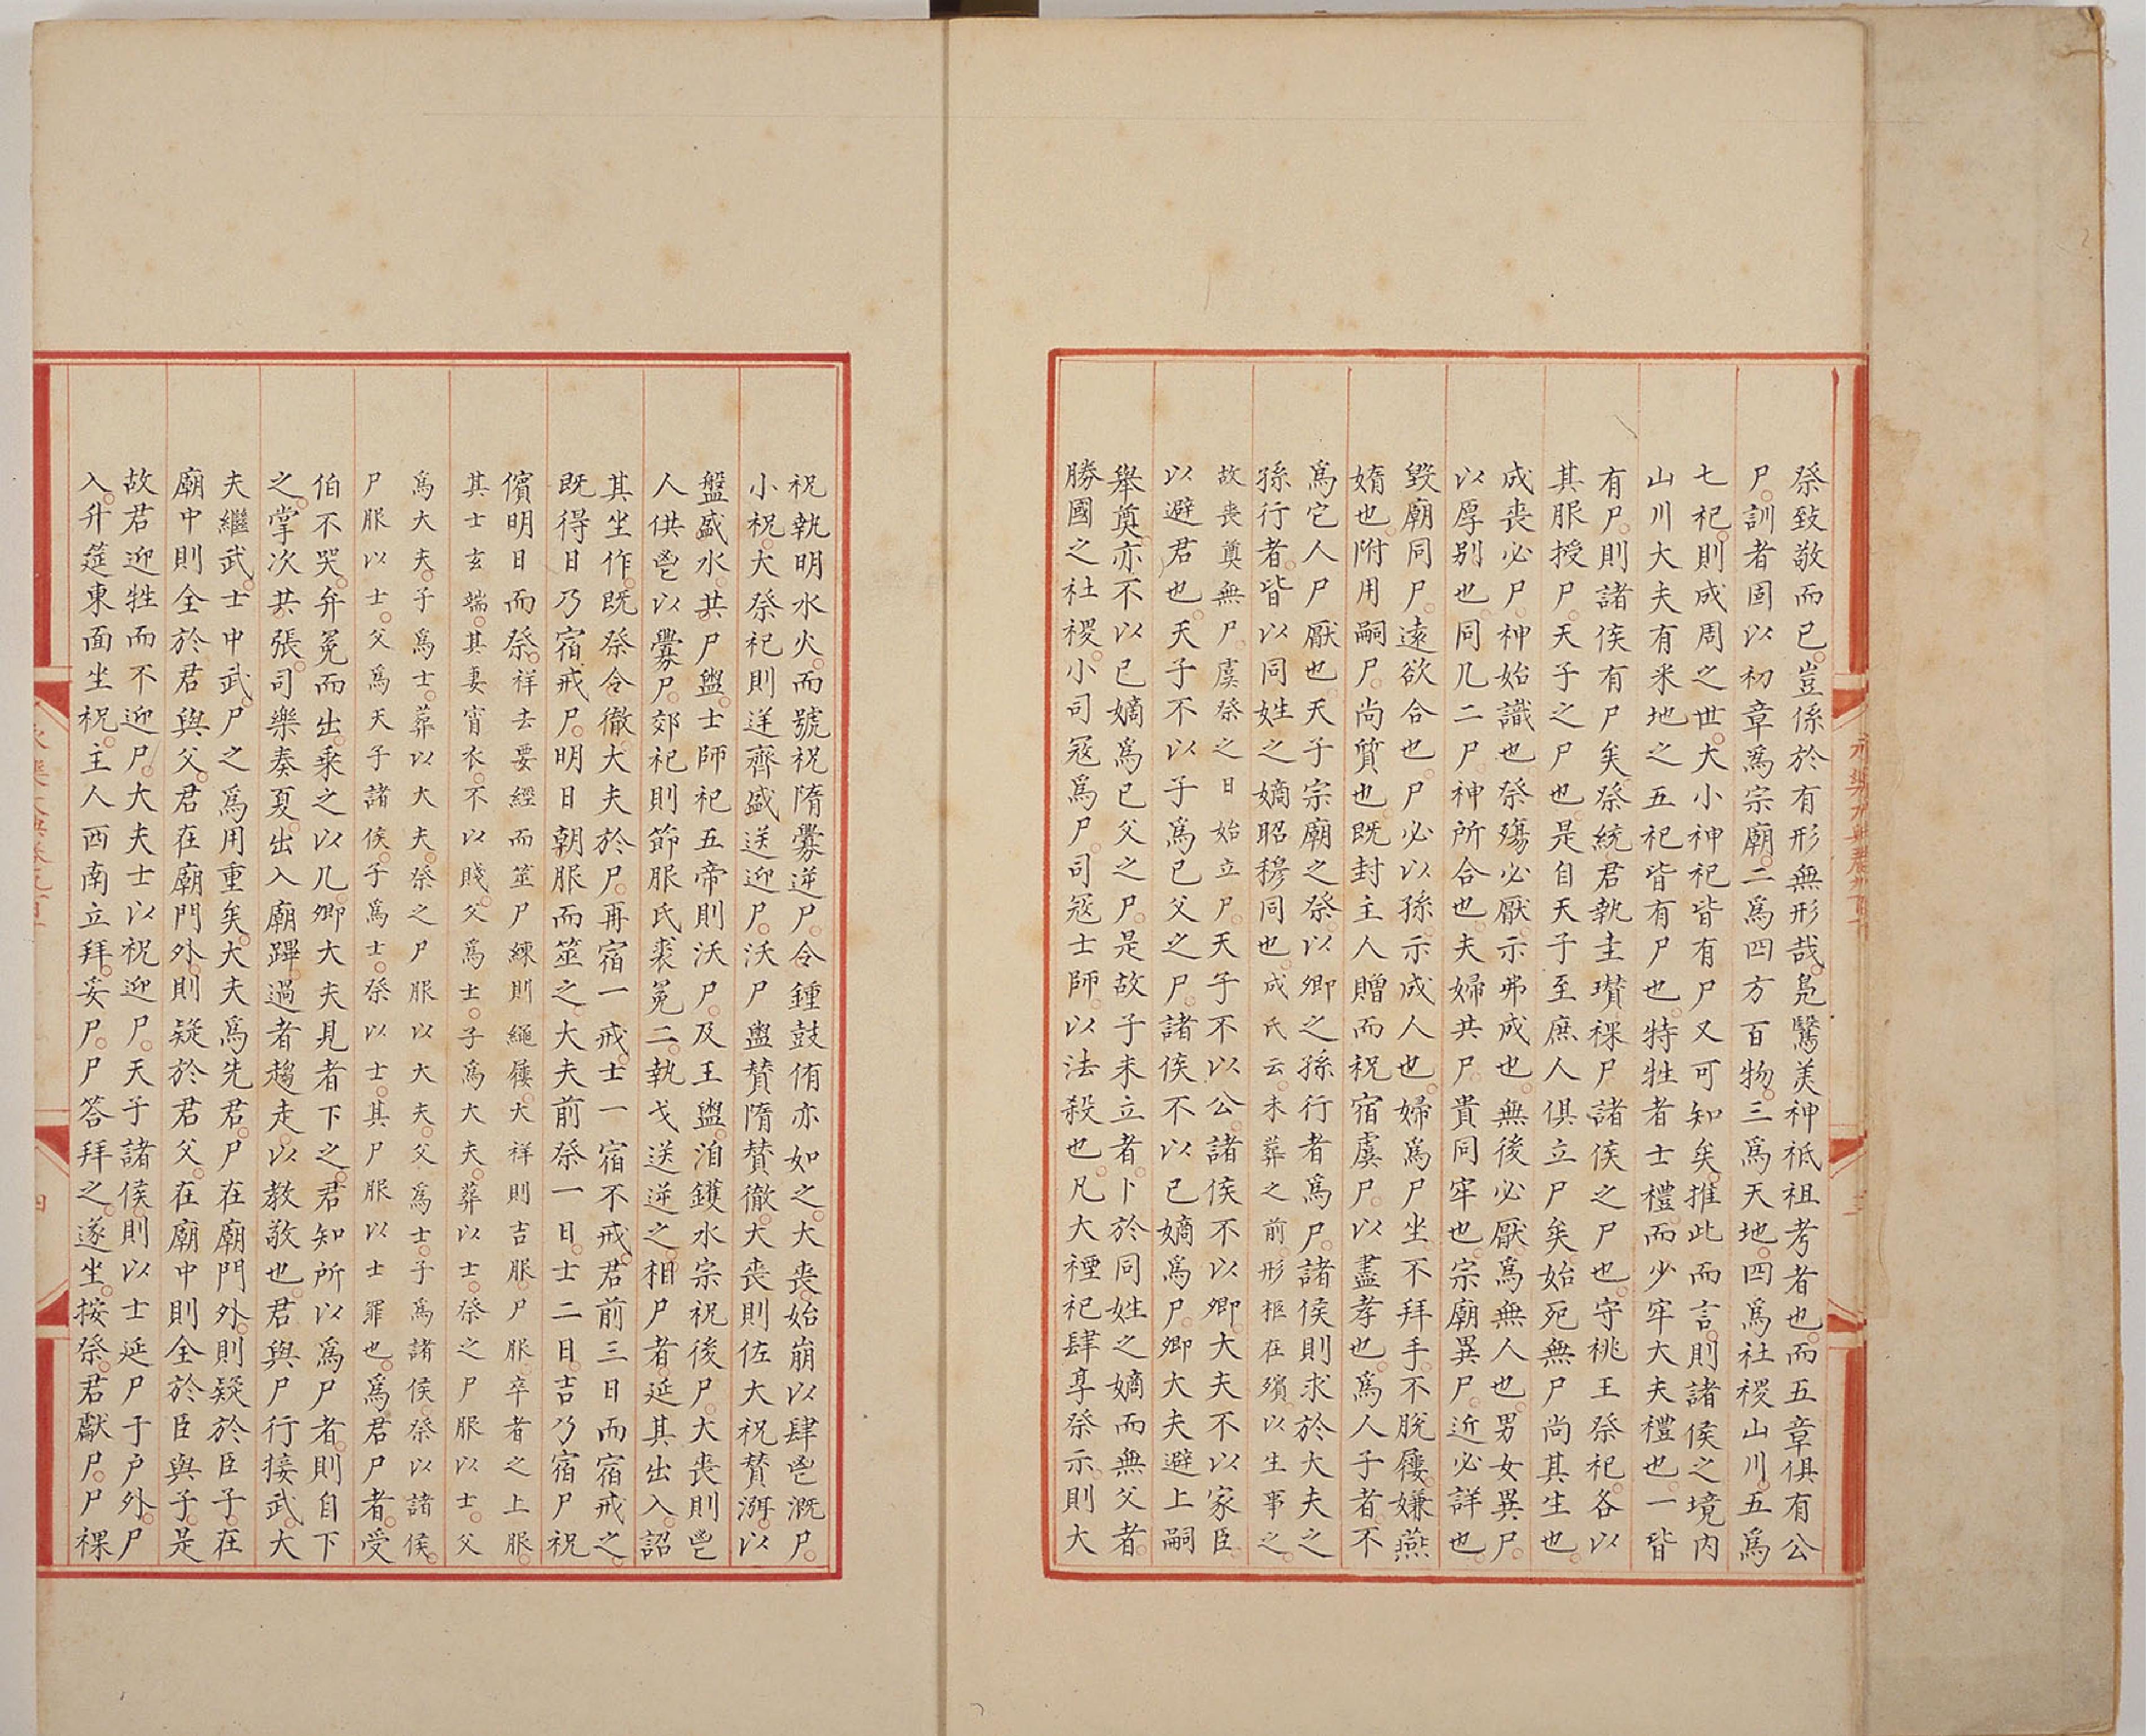 祭致敬而已。豈係於有形無形哉。鳧鷖美神祗祖考者也。而五章俱有公
尸。訓者固以初章為宗廟。二為四方百物。三為天地。四為社稷山川。五為
七祀。則成周之世。大小神祀皆有尸又可知矣。推此而言。則諸侯之境內
山川大夫有采地之五祀皆有尸也。特牲者士禮。而少牢大夫禮也。一皆
有尸。則諸侯有尸矣。祭統。君執圭瓚祼尸諸侯之尸也。守祧王祭祀。各以
其服授尸。天子之尸也。是自天子至庶人俱立尸矣。始死無尸尚其生也。
成喪必尸。神始識也。祭殤必厭。示弗成也。無後必厭。為無人也。男女異尸。
以厚别也。同几二尸。神所合也。夫婦共尸。貴同牢也。宗廟異尸。近必詳也。
毀廟同尸。遠欲合也。尸必以孫。示成人也。婦為尸坐。不拜手。不脫屨。嫌燕
媠也。附用嗣尸。尚質也。既封主人贈而祝宿虞尸。以盡孝也。為人子者。不
為它人尸厭也。天子宗廟之祭。以卿之孫行者為尸。諸侯則求於大夫之
孫行者。皆以同姓之嫡。昭穆同也。成氏云。未葬之前。形柩在殯。以生事之。
故喪奠無尸。虞祭之日始立尸。天子不以公。諸侯不以卿。大夫不以家臣。
以避君也。天子不以子為已父之尸。諸侯不以已嫡為尸。卿大夫避上嗣
舉奠。亦不以已嫡為已父之尸。是故子未立者。卜於同姓之嫡而無父者。
勝國之社稷。小司寇為尸。司寇士師。以法殺也。凡大禋祀肆享祭示。則大
祝執明水火。而號祝隋釁逆尸。令鍾鼓侑亦如之。大喪。始崩以肆鬯溉尸。
小祝。大祭祀則逆齊盛送迎尸。沃尸盥贊隋贊徹。大喪則佐大祝贊渳。以
盤盛水。共尸盥。士師祀五帝則沃尸。及王盥。洎鑊水宗祝後尸。大喪則鬯
人供鬯以釁尸。郊祀則節服氏裘冕二。執戈送逆之。相尸者。延其出入。詔
其坐作。既祭令徹。大夫於尸。再宿一戒。士一宿不戒。君前三日而宿戒之。
既得日乃宿戒尸。明日朝服而筮之。大夫前祭一日。士二日。吉乃宿尸祝
儐明日而祭。祥去要絰而筮尸練則繩屨。大祥則吉服。尸服卒者之上服。
其士玄端。其妻宵衣。不以賤。父為士。子為大夫。葬以士。祭之尸服以士。父
為大夫。子為士。葬以大夫。祭之尸服以大夫。父為士。子為諸侯。祭以諸侯。
尸服以士。父為天子諸侯。子為士。祭以士。其尸服以士罪也。為君尸者。受
伯不哭。弁冕而出。乘之以几。卿大夫見者下之。君知所以為尸者。則自下
之。掌次共張。司樂奏夏。出入廟蹕。過者趨走。以教敬也。君與尸行接武。大
夫繼武。士中武。尸之為用重矣。大夫為先君。尸在廟門外。則疑於臣子。在
廟中則全於君與父。君在廟門外。則疑於君父。在廟中則全於臣與子。是
故君迎牲而不迎尸。大夫士以祝迎尸。天子諸侯。則以士延尸于户外。尸
入。升筵東面坐祝。主人西南立拜。妥尸。尸答拜之。遂坐。按祭。君獻尸。尸祼